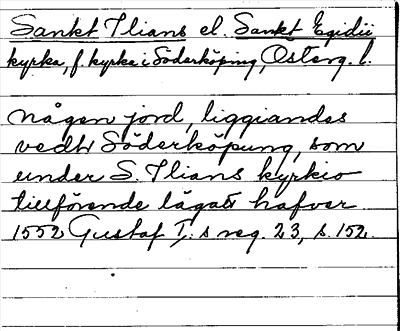 Sankt Ilians el. Sankt Egidii
kyrka, f. kyrka i Söderköping, Österg. l.
någen jord, liggiandes
vedh Söderköpung, som
under S. Ilians kyrkio
tillförende lågatt hafver
1552 Gustaf I:s reg. 23, s. 152.